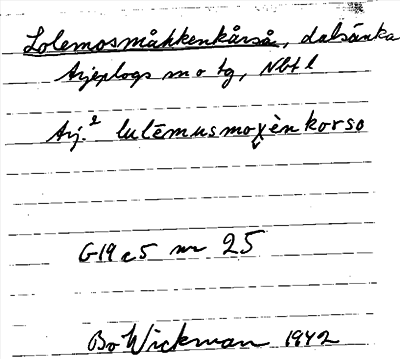 Lolemosmåkkenkårså, dalsänka
Arjeplogs sn o tg, Nbtl
Arj.² lulēmusmoχèn korso
G19 c5 nr 25
Bo Wickman 1942